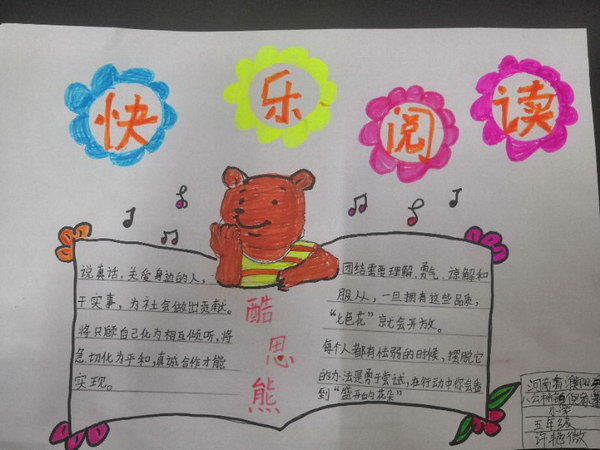 快乐阅读
说真话,关爱身边的人,
干实事,为社会做出贡献。
将只顾自己化为相互倾听,将
急切化为平和,真诚合作才能
实现。
酷思熊
团结需要理解、勇气、谅解和
服从,一旦拥有这些品质,
“七色花”就会开放。
每个人都有怯弱的时候,摆脱它
的办法是勇于尝试,在行动中你会看
到“盛开的花朵”
河南省濮阳
八公桥镇
小学
五年级
许艳微